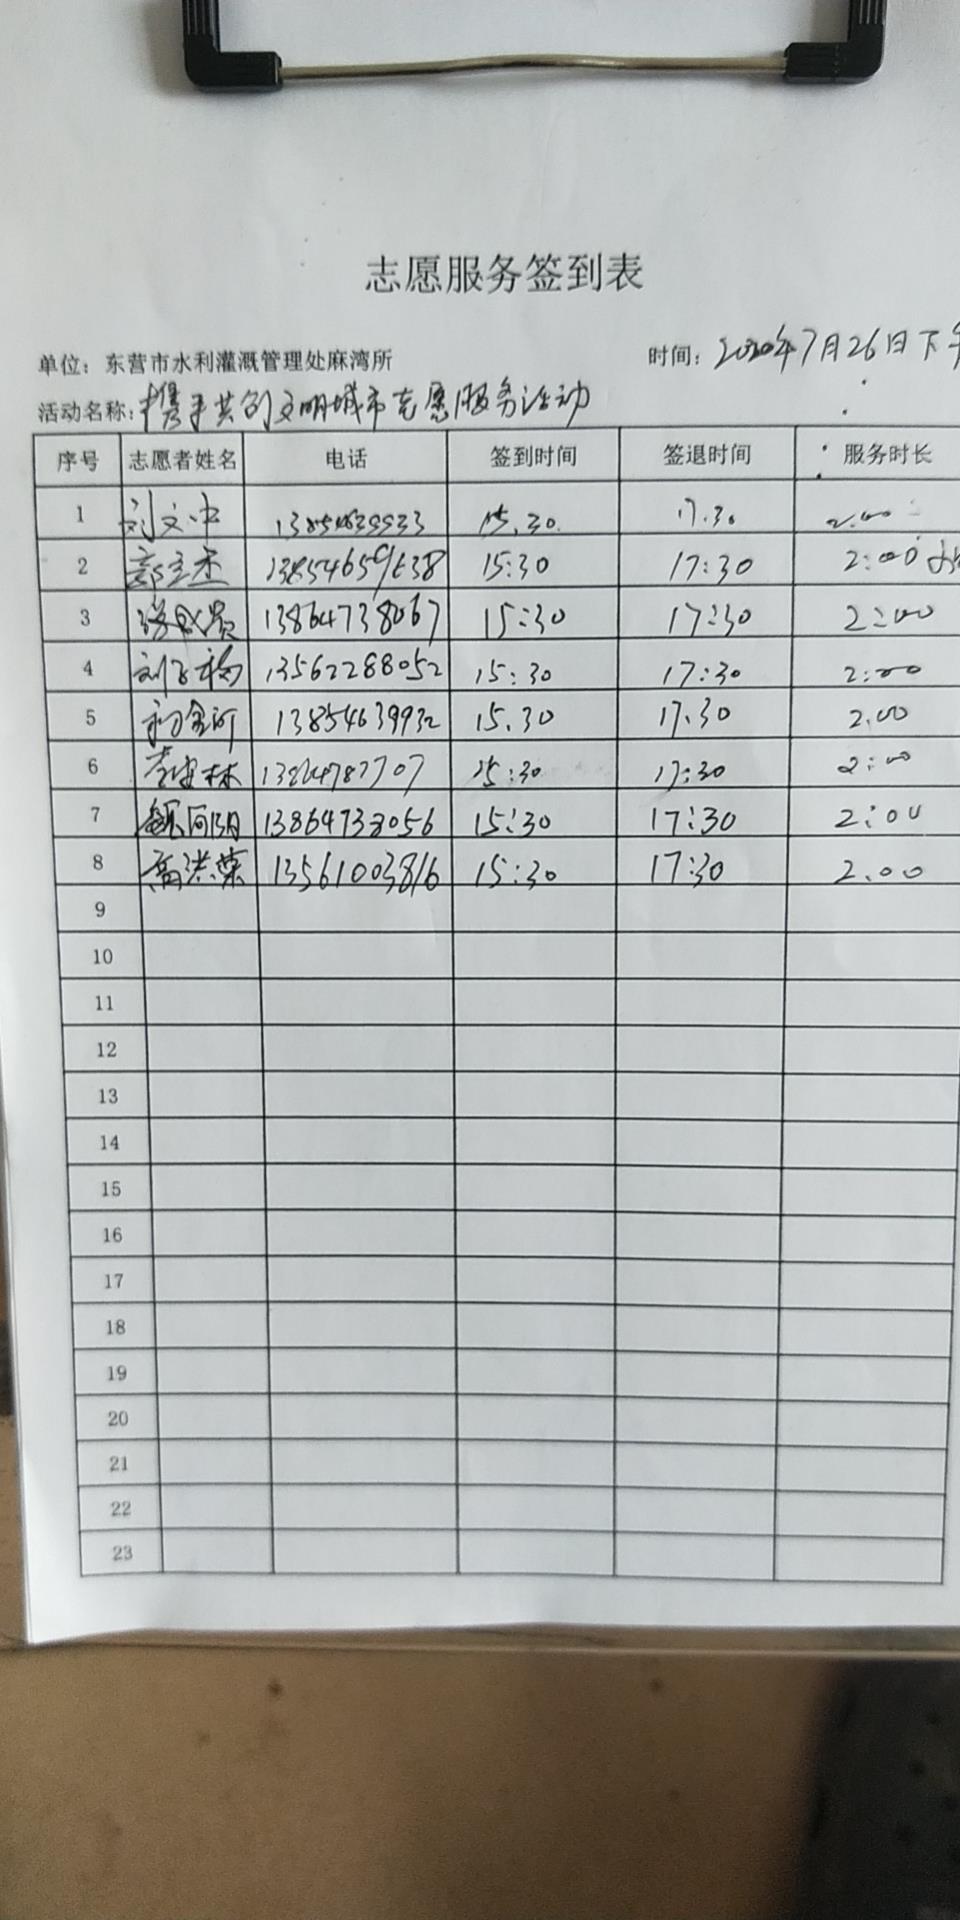 志愿服务签到表
单位：东营市水利灌溉管理处麻湾所 时间：2020年7月26日下午
活动名称：携手共创文明城市志愿服务活动
序号 志愿者姓名 电话 签到时间 签退时间 服务时长
1 刘文中 15.30 17.30 2.00
2 15:30 17:30 2:00
3 13864738067 15:30 17:30 2:00
4 13562288052 15:30 17:30 2:00
5 13854639932 15.30 17.30 2.00
6 15:30 17:30 2:00
7 13864738056 15:30 17:30 2:00
8 高洪荣 13561003816 15:30 17:30 2.00
9
10
11
12
13
14
15
16
17
18
19
20
21
22
23